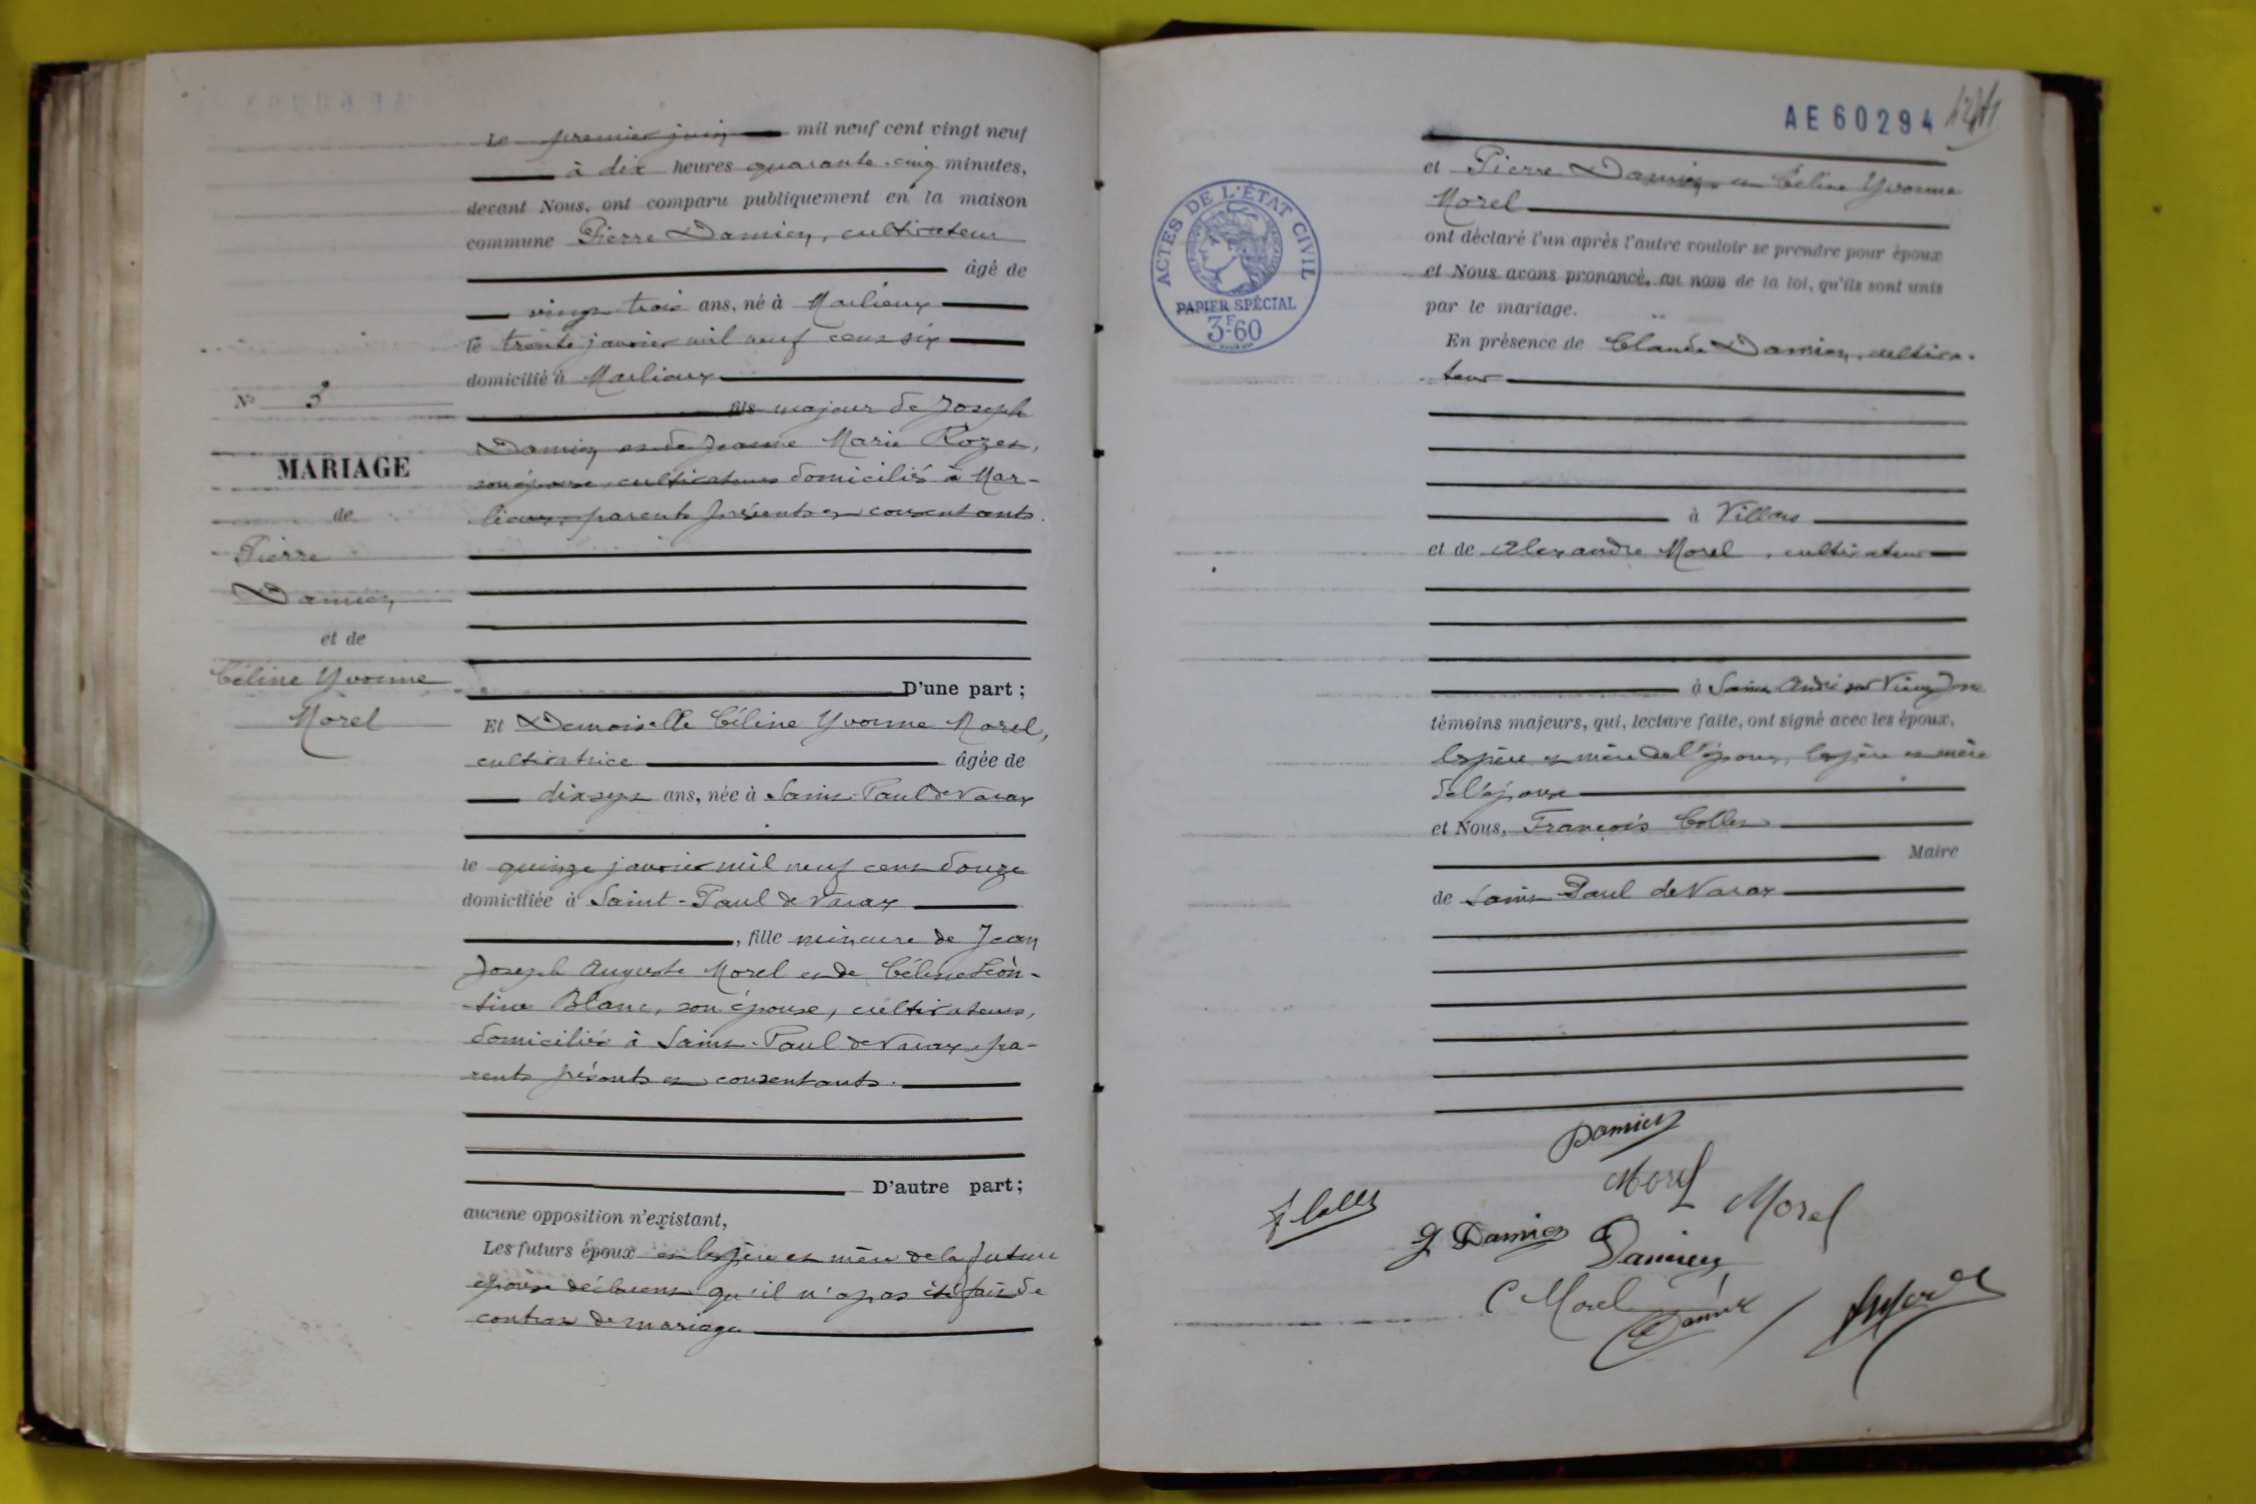 Le premier juin mil neuf cent vingt neuf
à dix heures quarante-cinq minutes,
devant Nous, ont comparu publiquement en la maison
commune Pierre Damien, cultivateur
âgé de
vingt trois ans, né à Marlieux
le trente janvier mil neuf cent six
domicilié à Marlieux
fils majeur de Joseph
Damien et de Jeanne Marie Rozet,
son épouse, cultivateurs domiciliés à Mar-
lieux, parents présents et consentants.
N° 3
MARIAGE
de
Pierre
Damien
et de
Céline Yvonne
Morel
D'une part ;
Et Demoiselle Céline Yvonne Morel,
cultivatrice âgée de
dix sept ans, née à Saint-Paul de Varax
le quinze janvier mil neuf cent douze
domiciliée à Saint-Paul de Varax
, fille mineure de Jean
Joseph Auguste Morel et de Céline Léon-
tine Blanc, son épouse, cultivateurs,
domiciliés à Saint-Paul de Varax, pa-
rents présents et consentants.
D'autre part ;
aucune opposition n'existant,
Les futurs époux et les père et mère de la future
épouse déclarent qu'il n'a pas été fait de
contrat de mariage
AE60294
et Pierre Damien et Céline Yvonne
Morel
ont déclaré l'un après l'autre vouloir se prendre pour époux
et Nous avons prononcé, au nom de la loi, qu'ils sont unis
par le mariage.
En présence de Claude Damien, cultiva-
teur
à Villars
et de Alexandre Morel, cultivateur
à Saint André sur Vieux Jonc
témoins majeurs, qui, lecture faite, ont signé avec les époux,
les père et mère de l'époux, les père et mère
de l'épouse
et Nous, François Collet
Maire
de Saint-Paul de Varax
ACTES DE L'ÉTAT CIVIL
PAPIER SPÉCIAL
3F60
Damien
Morel
Morel
F Collet
J Damien
Damien
C Morel
Damien